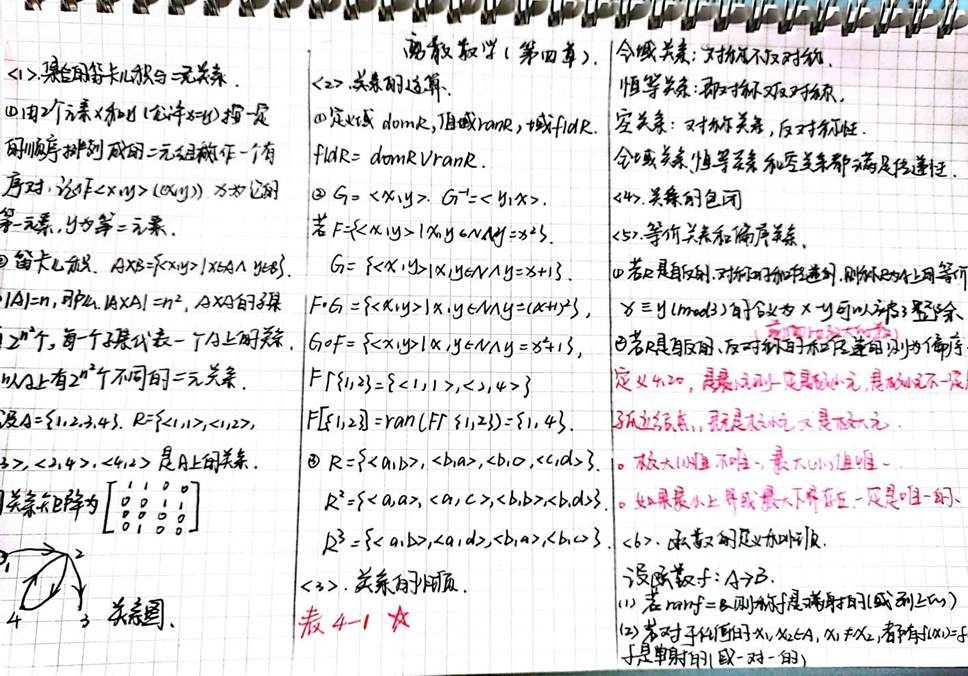 离散数学(第四章).
<1>.集合的笛卡儿积与二元关系.
①由2个元素x和y(允许x=y)按一定
的顺序排列成的二元组称作一个有
序对,记作<x,y>((x,y)) x为它的
第一元素,y为第二元素.
②笛卡儿积. A×B={<x,y>|x∈A∧y∈B}.
|A|=n,那么|A×A|=n²,A×A的子集
有2^n²个,每一个子集代表一个A上的关系.
所以A上有2^n²个不同的二元关系.
设A={1,2,3,4}. R={<1,1>,<1,2>,
3>,<2,4>,<4,2>是A上的关系.
关系矩阵为[
1 1 0 0
0 0 1 1
0 0 0 0
0 1 0 0
]
1 2
4 3 关系图.
<2>.关系的运算.
①定义域domR,值域ranR,域fldR.
fldR=domR∪ranR.
② G=<x,y>. G⁻¹=<y,x>.
若F={<x,y>|x,y∈N∧y=x²}.
G={<x,y>|x,y∈N∧y=x+1}.
F∘G={<x,y>|x,y∈N∧y=(x+1)²},
G∘F={<x,y>|x,y∈N∧y=x²+1},
F↾{1,2}={<1,1>,<2,4>}
F[{1,2}]=ran(F↾{1,2})={1,4}.
③ R={<a,b>,<b,a>,<b,c>,<c,d>}.
R²={<a,a>,<a,c>,<b,b>,<b,d>}.
R³={<a,b>,<a,d>,<b,a>,<b,c>}.
<3>.关系的性质.
表4-1 ☆
全域关系:对称不反对称.
恒等关系:即对称又反对称.
空关系:对称关系,反对称性.
全域关系,恒等关系和空关系都满足传递性.
<4>.关系的包闭
<5>.等价关系和偏序关系.
①若R是自反的,对称的和传递的,则称R为A上的等价
x≡y(mod3)的含义为x-y可以被3整除.
②若R是自反的、反对称的和传递的,则为偏序
定义4.20,是最小元则一定是极小元,是极小元不一定
孤立结点,既是极小元又是极大元.
。极大(小)值不唯一,最大(小)值唯一
。如果最小上界或最大下界存在一定是唯一的.
<6>.函数的定义和性质.
设函数f:A→B.
(1)若ranf=B,则称f是满射的(或到上的)
(2)若对于任何的x₁,x₂∈A,x₁≠x₂,都有f(x₁)≠f
f是单射的(或一对一的)